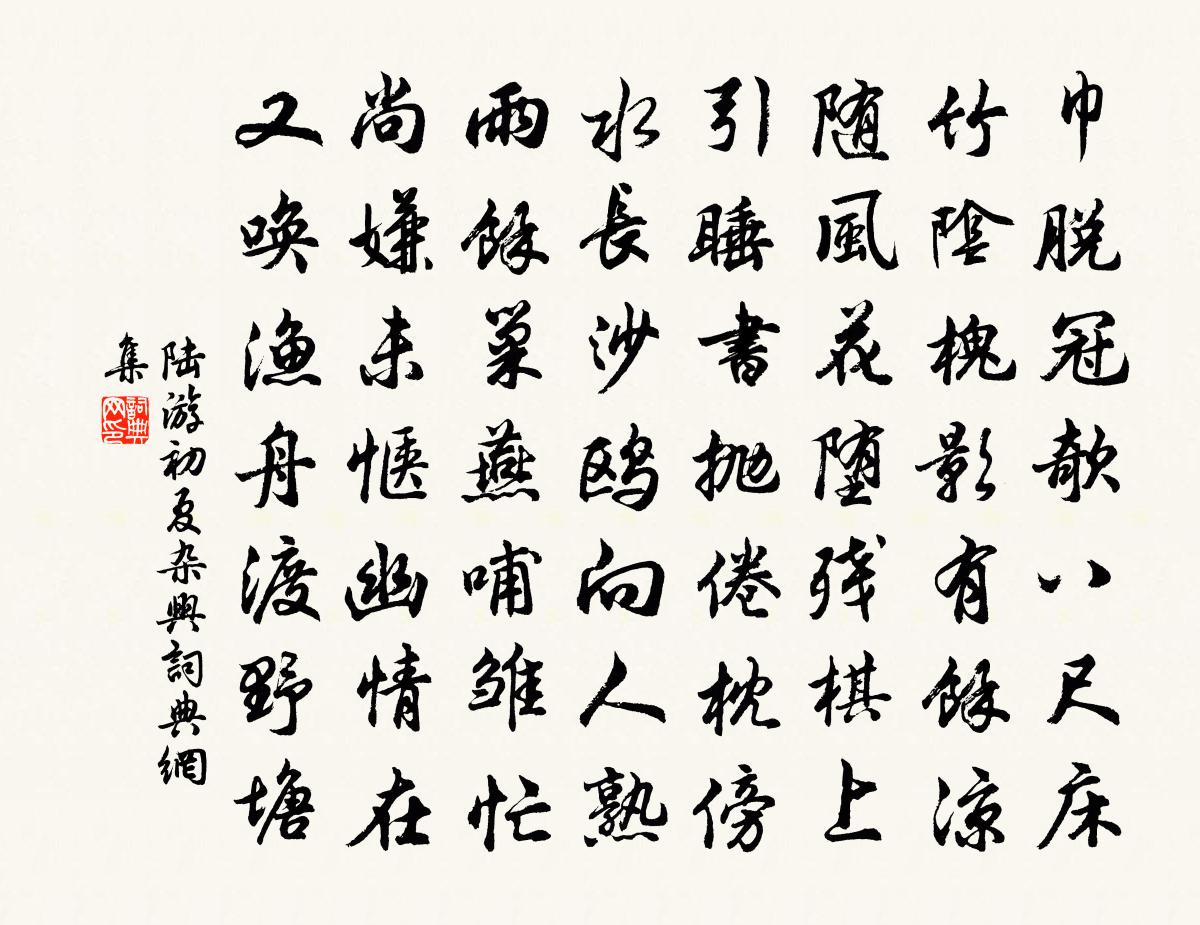 巾脱冠欹八尺床
竹陰槐影有餘涼
随風花堕残棋上
引睡書抛倦枕傍
水長沙鸥向人熟
雨餘巢燕哺雏忙
尚嫌未惬幽情在
又唤渔舟渡野塘
陆游初夏杂興詞典網
集
詞典
网印